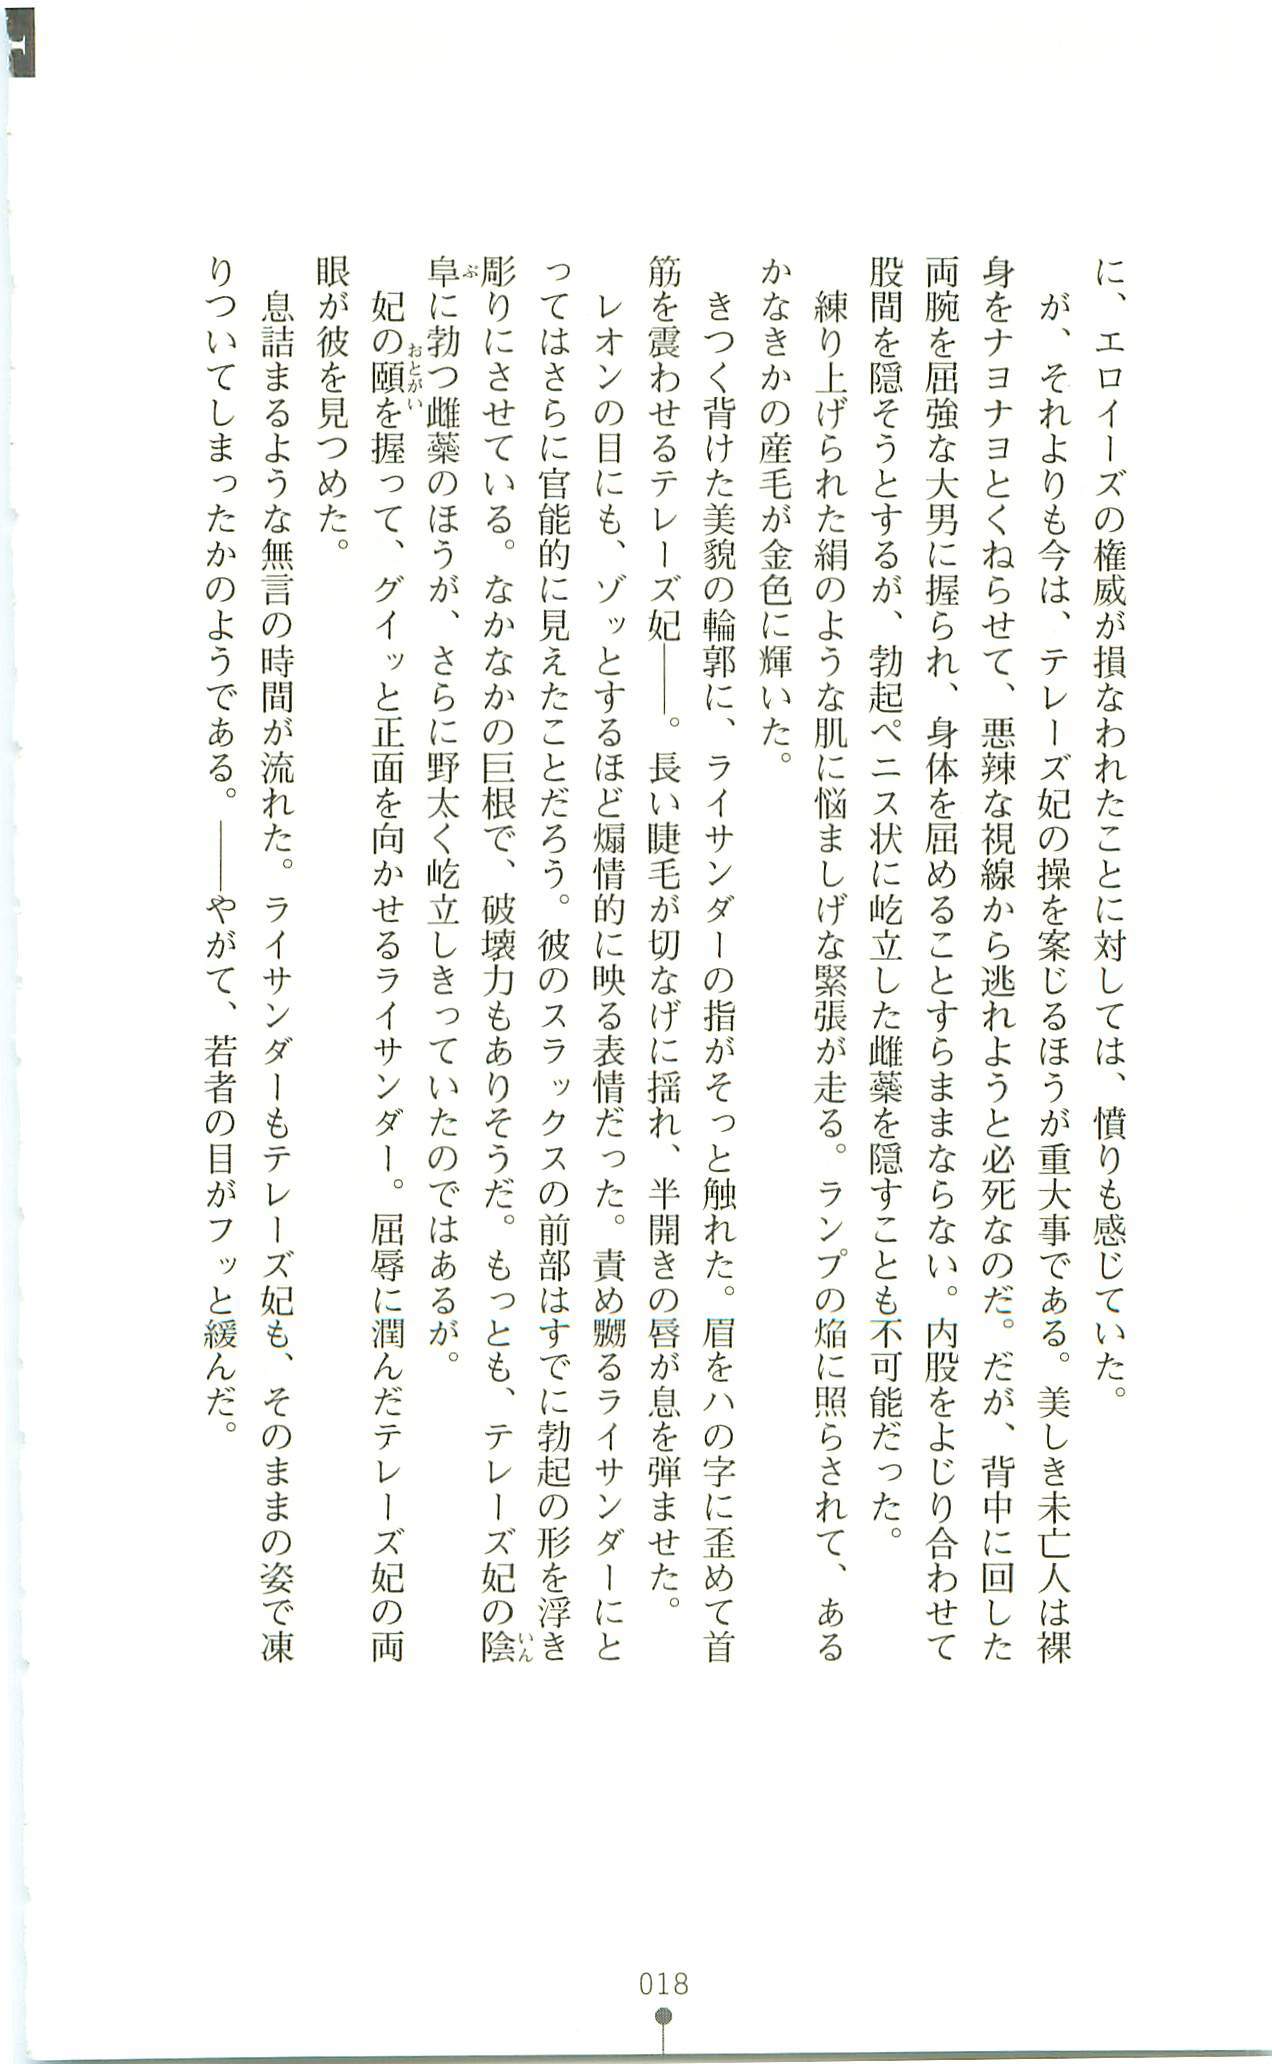 に、エロイーズの権威が損なわれたことに対しては、憤りも感じていた。
が、それよりも今は、テレーズ妃の操を案じるほうが重大事である。美しき未亡人は裸
身をナヨナヨとくねらせて、悪辣な視線から逃れようと必死なのだ。だが、背中に回した
両腕を屈強な大男に握られ、身体を屈めることすらままならない。内股をよじり合わせて
股間を隠そうとするが、勃起ペニス状に屹立した雌蘂を隠すことも不可能だった。
練り上げられた絹のような肌に悩ましげな緊張が走る。ランプの焔に照らされて、ある
かなきかの産毛が金色に輝いた。
きつく背けた美貌の輪郭に、ライサンダーの指がそっと触れた。眉をハの字に歪めて首
筋を震わせるテレーズ妃――。長い睫毛が切なげに揺れ、半開きの唇が息を弾ませた。
レオンの目にも、ゾッとするほど煽情的に映る表情だった。責め嬲るライサンダーにと
ってはさらに官能的に見えたことだろう。彼のスラックスの前部はすでに勃起の形を浮き
彫りにさせている。なかなかの巨根で、破壊力もありそうだ。もっとも、テレーズ妃の陰
いん
阜に勃つ雌蘂のほうが、さらに野太く屹立しきっていたのではあるが。
ぶ
妃の頤を握って、グイッと正面を向かせるライサンダー。屈辱に潤んだテレーズ妃の両
おとがい
眼が彼を見つめた。
息詰まるような無言の時間が流れた。ライサンダーもテレーズ妃も、そのままの姿で凍
りついてしまったかのようである。――やがて、若者の目がフッと緩んだ。
018